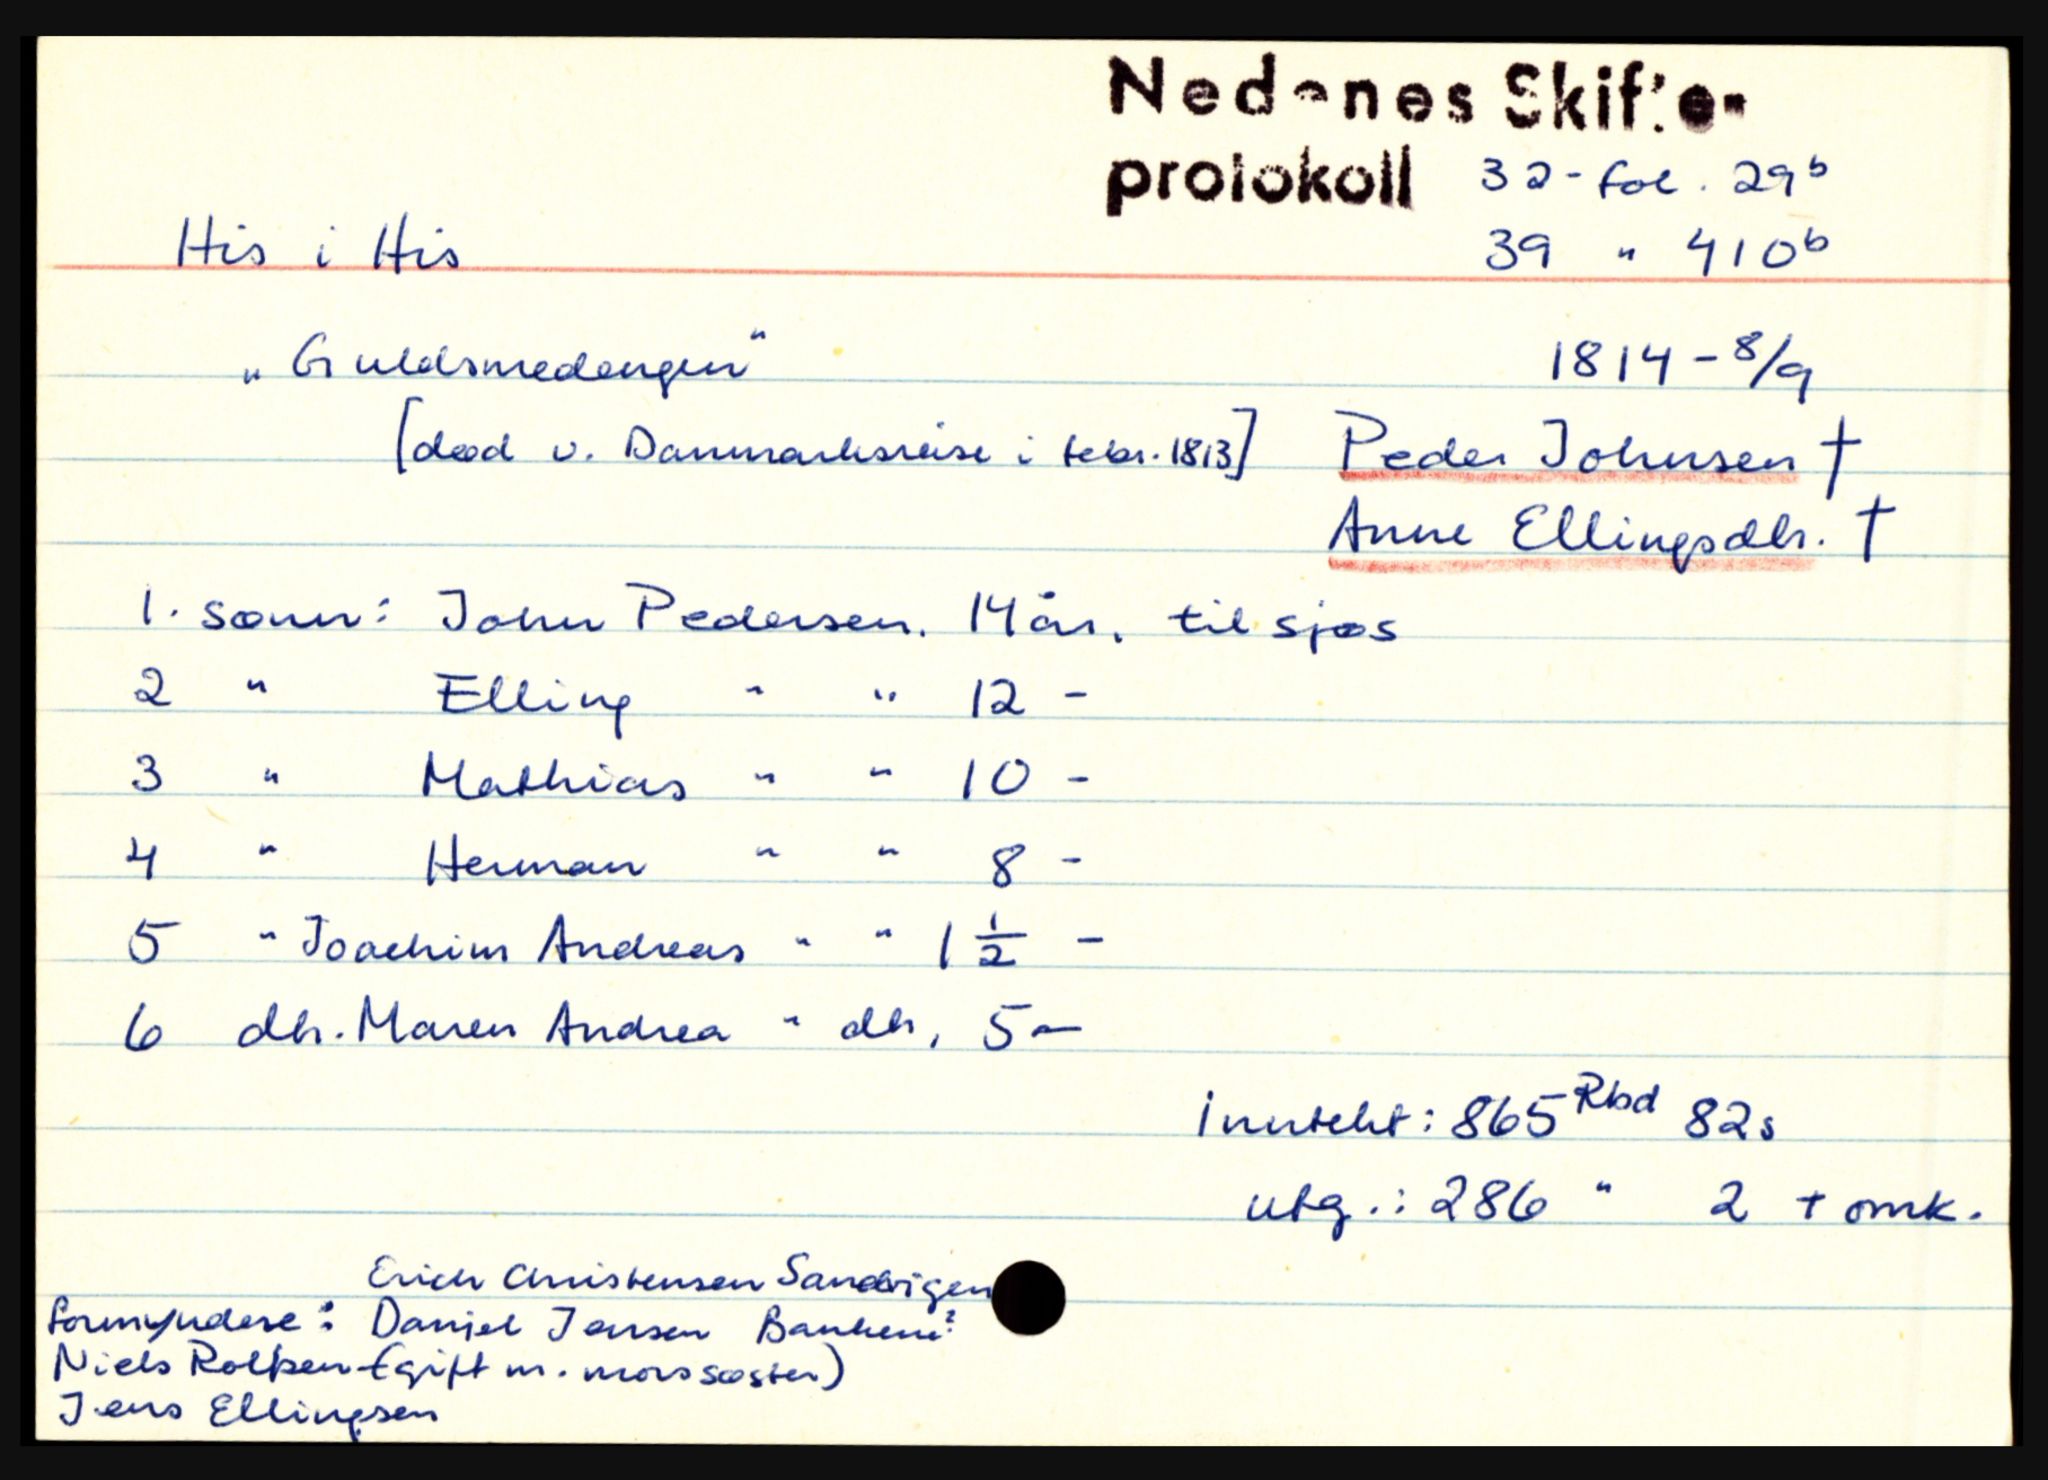 Nedenes Skifte-
protokoll 32 - fol. 29b
39 " 410b
His i His
"Guldsmedengen" 1814 - 8/9
[død v. Danmarksreise i febr. 1813] Peder Johnsen †
Anne Ellingsdtr. †
1. sønn: John Pedersen. 14 år. til sjøs
2 " Elling " " 12 -
3 " Mathias " " 10 -
4 " Herman " " 8 -
5 " Joachim Andreas " " 1 1/2 -
6 dtr. Maren Andrea " dtr, 5 -
Inntekt: 865 Rbd 82 s
utg.: 286 " 2 + omk.
Erich Christensen Sandvigen
formyndere: Daniel Jensen
Niels Rolfsen (gift m. mors søster)
Jens Ellingsen